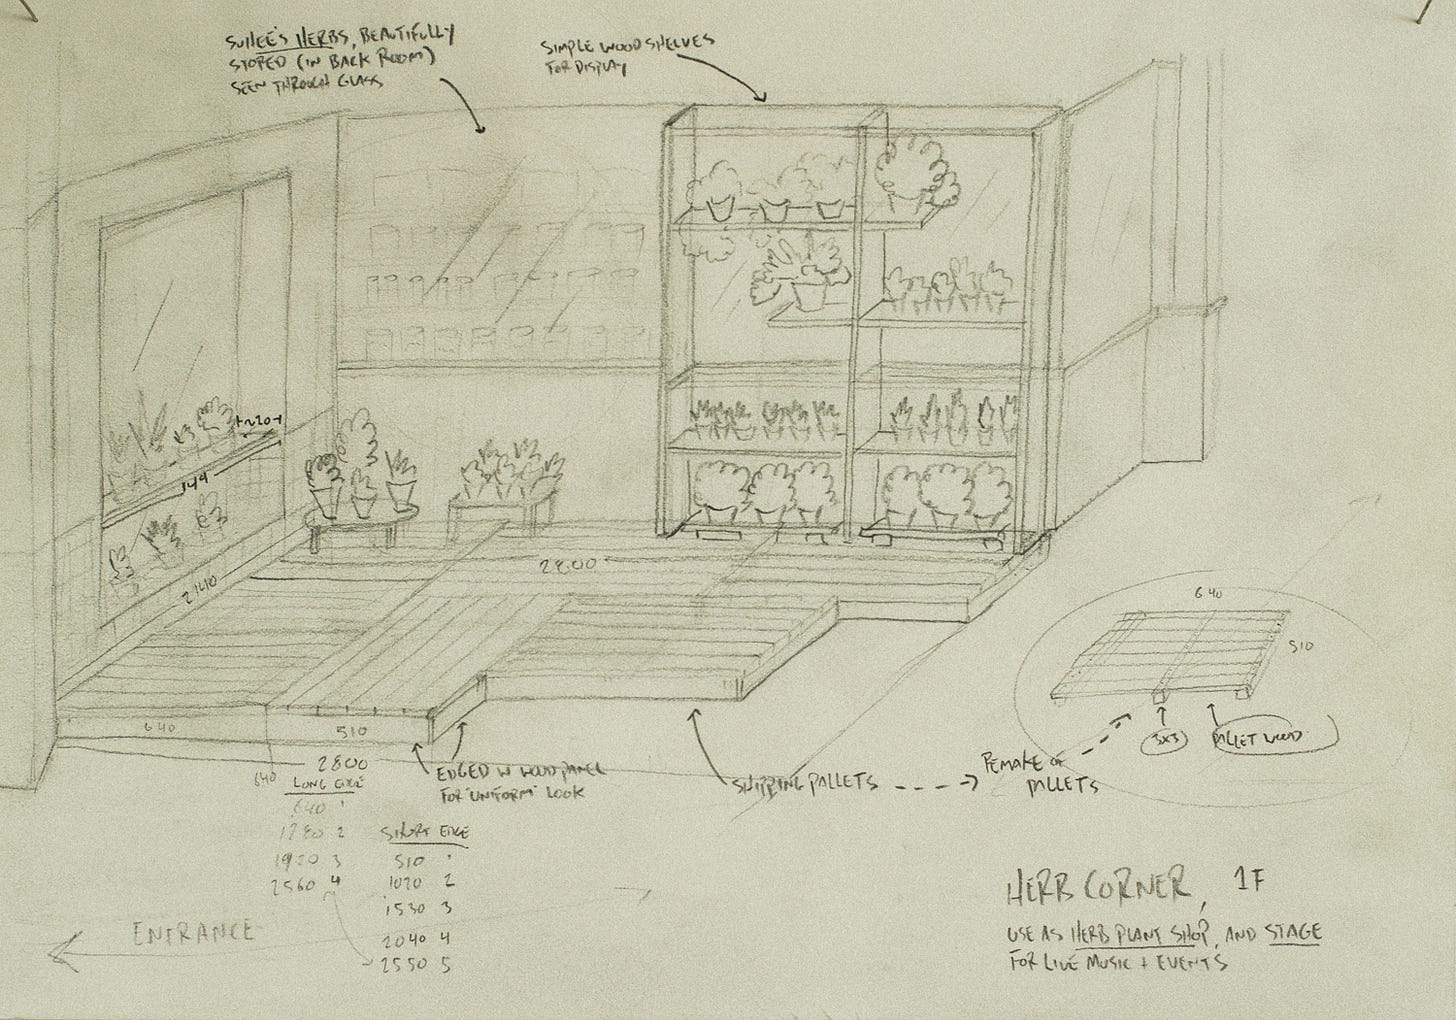 SUHEE'S HERBS, BEAUTIFULLY
STORED (IN BACK ROOM)
SEEN THROUGH GLASS
SIMPLE WOOD SHELVES
FOR DISPLAY
~20
144
2140
2800
640
510
640
510
3x3
PALLET WOOD
REMAKE OF
PALLETS
SHIPPING PALLETS
EDGED W WOOD PANEL
FOR "UNIFORM" LOOK
2800
640
LONG EDGE
640 1
1280 2
1920 3
2560 4
SHORT EDGE
510 1
1020 2
1530 3
2040 4
2550 5
ENTRANCE
HERB CORNER, 1F
USE AS HERB PLANT SHOP, AND STAGE
FOR LIVE MUSIC + EVENTS